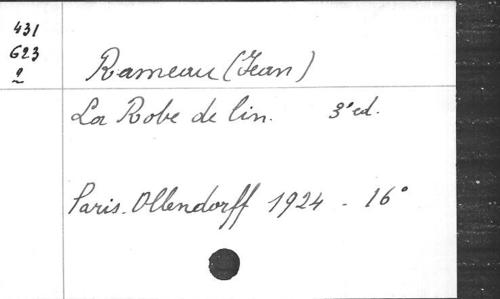 431
623
2
Rameau (Jean)
La Robe de lin. 3ᵉ ed.
Paris. Ollendorff 1924 - 16°